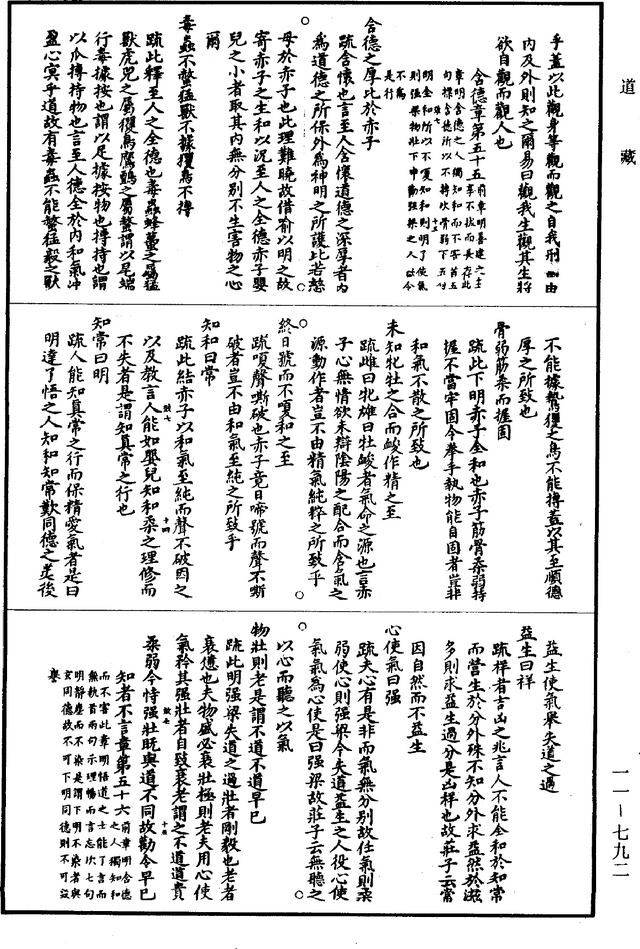 道藏
乎蓋以此觀身等觀而觀之自我刑由
內及外則知之爾易曰觀我生觀其生將
欲自觀而觀人也
含德章第五十五
含德之厚比於赤子
疏含懷也言至人含懷道德之深厚者內
為道德之所保外為神明之所護比若慜
母於赤子也此理難曉故借喻以明之故
寄赤子之生和以況至人之全德赤子嬰
兒之小者取其內無分別不生害物之心
爾
毒蟲不螫猛獸不據攫鳥不搏
疏此釋至人之全德也毒蟲蜂蠆之屬猛
獸虎兕之屬攫鳥鷹鸇之屬螫謂以尾端
行毒據按也謂以足據按物也搏持也謂
以爪搏持物也言至人德全於內和氣冲
盈心冥乎道故有毒蟲不能螫猛毅之獸
不能據鷙攫之鳥不能搏蓋以其至順德
厚之所致也
骨弱筋柔而握固
疏此下明赤子全和也赤子筋骨柔弱持
握不當牢固今拳手執物能自固者豈非
和氣不散之所致也
未知牝牡之合而峻作精之至
疏雌曰牝雄曰牡峻者氣命之源也言赤
子心無情欲未辯陰陽之配合而含氣之
源動作者豈不由精氣純粹之所致乎
終日號而不嗄和之至
疏嗄聲嘶破也赤子竟日啼號而聲不嘶
破者豈不由和氣至純之所致乎
知和曰常
疏此結赤子以和氣至純而聲不破因之
以及教言人能如嬰兒知和柔之理修而
不失者是謂知真常之行也
知常曰明
疏人能知真常之行而保精愛氣者是曰
明達了悟之人知和知常歎同德之美後
益生使氣舉失道之過
益生曰祥
疏祥者言凶之兆言人不能全和於知常
而營生於分外殊不知分外求益然於滋
多則求益生過分是凶祥也故莊子云常
因自然而不益生
心使氣曰强
疏夫心有是非而氣無分別故任氣則柔
弱使心則强梁今失道益生之人役心使
氣氣為心使是曰强梁故莊子云無聽之
以心而聽之以氣
物壯則老是謂不道不道早已
疏此明强梁失道之過壯者剛毅也老者
衰憊也夫物盛必衰壯極則老夫用心使
氣矜其强壯者自致衰老謂之不道道貴
柔弱今恃强壯旣與道不同故勸令早已
知者不言章第五十六
一一—七九二